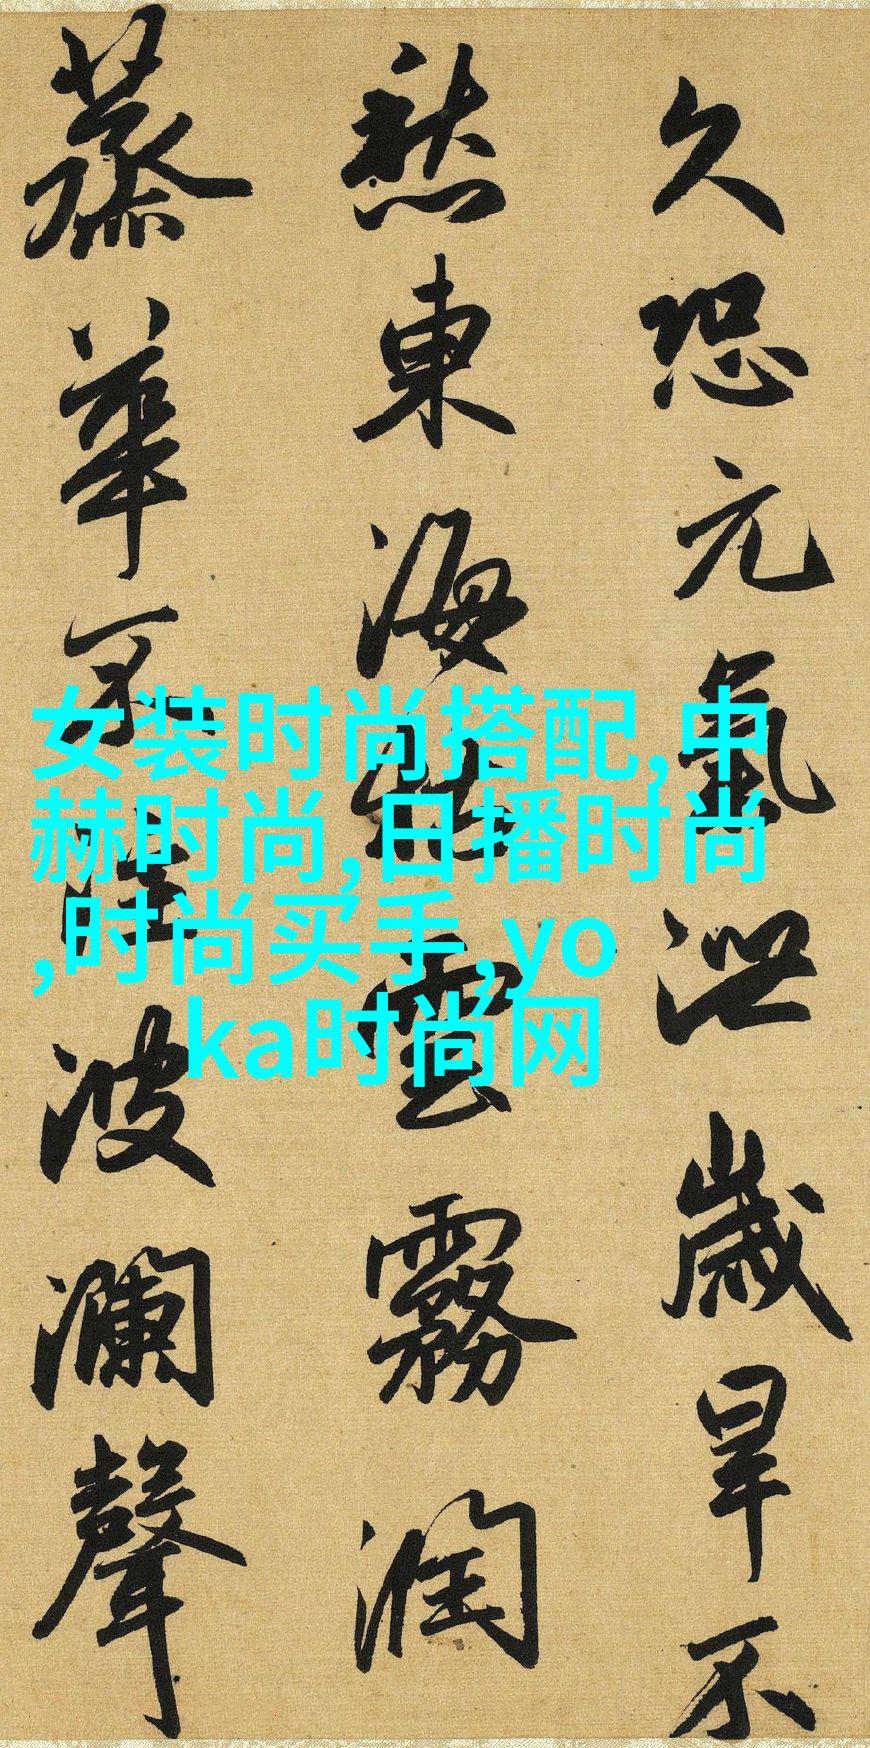 久恐元氣泄歲旱不
愁東海枯雲霧潤
蒸華不注波瀾聲
女装时尚搭配,中
赫时尚,日播时尚
,时尚买手,yo
ka时尚网